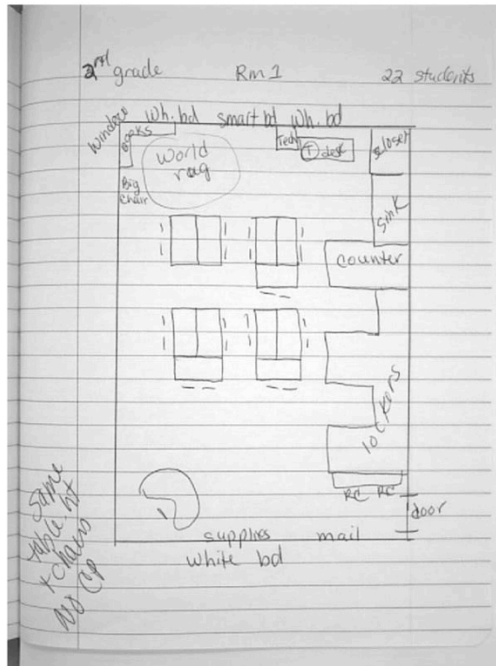 2nd grade Rm 1 22 students
Window
Wh. bd smart bd Wh. bd
Books
World
rug
Tech
T desk
closet
Big
chair
sink
counter
lockers
RC RC
door
supplies mail
white bd
Same
table ht
+ chairs
No CP